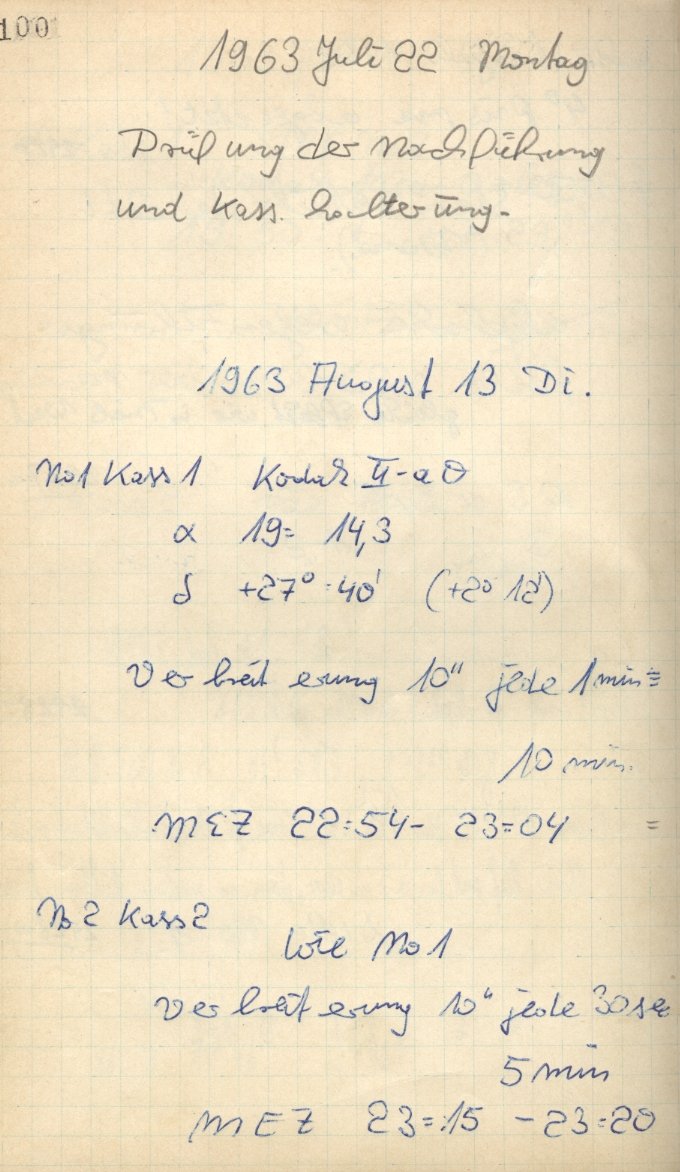 100
1963 Juli 22 Montag
Prüfung der Nachführung
und Kass. halterung.
1963 August 13 Di.
No1 Kass 1 Kodak II-a O
α 19= 14,3
δ +27° 40' (+2° 12')
Verbreiterung 10" jede 1 min =
10 min.
MEZ 22=54 - 23=04 =
No 2 Kass 2
wie No 1
Verbreiterung 10" jede 30 sec
5 min
MEZ 23=15 - 23=20